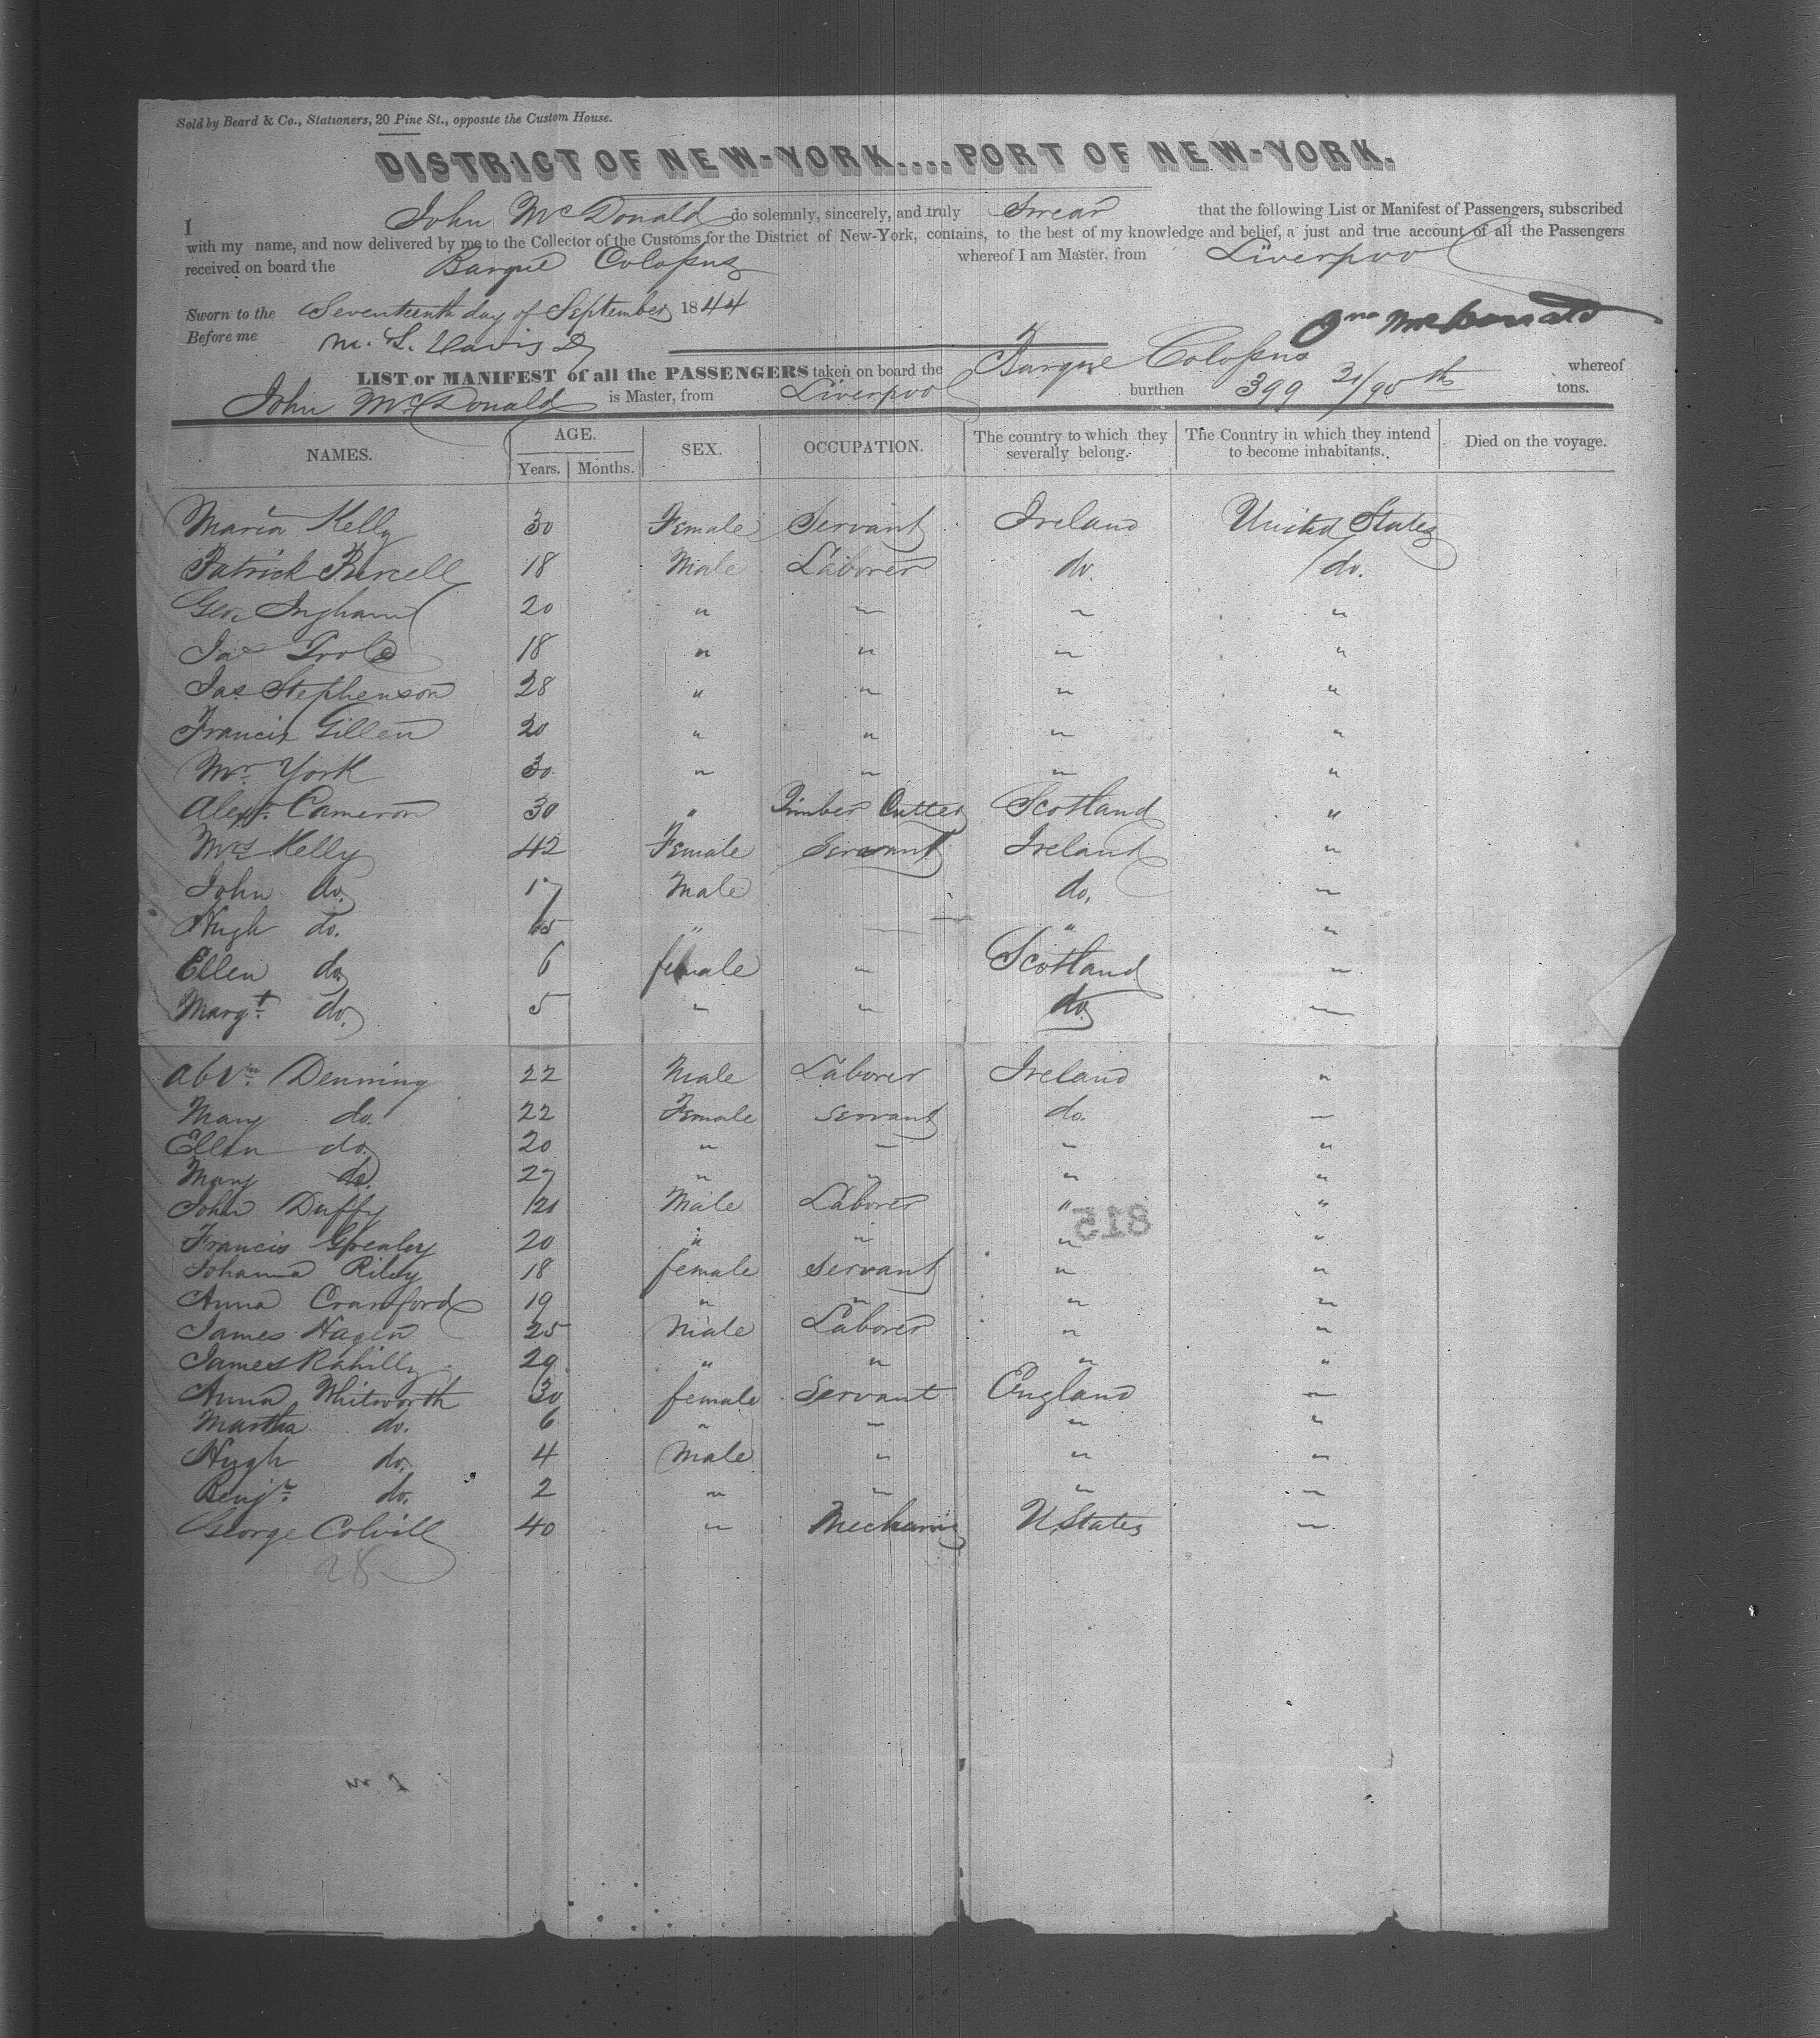 Sold by Beard & Co., Stationers, 20 Pine St., opposite the Custom House.
DISTRICT OF NEW-YORK....PORT OF NEW-YORK.
I John McDonald do solemnly, sincerely, and truly Swear that the following List or Manifest of Passengers, subscribed
with my name, and now delivered by me to the Collector of the Customs for the District of New-York, contains, to the best of my knowledge and belief, a just and true account of all the Passengers
received on board the Barque Colossus whereof I am Master, from Liverpool
Sworn to the Seventeenth day of September 1844
Jno McDonald
Before me M. L. Davis
LIST or MANIFEST of all the PASSENGERS taken on board the Barque Colossus whereof
John McDonald is Master, from Liverpool burthen 399 31/95 ths tons.
NAMES. AGE. Years. Months. SEX. OCCUPATION. The country to which they severally belong. The Country in which they intend to become inhabitants. Died on the voyage.
Maria Kelly 30 Female Servant Ireland United States
Patrick Purcell 18 Male Laborer do. do.
Geo. Ingham 20 " " " "
Jas 18 " " " "
Jas. Stephenson 28 " " " "
Francis Gillen 20 " " " "
Mr. York 30 " " " "
Alexr. Cameron 30 " Timber Cutter Scotland "
Mrs Kelly 42 Female Servant Ireland "
John do. 17 Male do. "
Hugh do. 15 " " "
Ellen do. 6 female " Scotland "
Margt. do. 5 " " do. "
Denning 22 Male Laborer Ireland "
Mary do. 22 Female Servant do. "
Ellen do. 20 " " " "
Mary do. 27 " " " "
John Duffy 21 Male Laborer " "
815
Francis 20 " " " "
Johanna Riley 18 female Servant " "
Anna Crawford 19 " " " "
James Hagen 25 Male Laborer " "
James Rahilly 29 " " " "
Anna Whitworth 30 female Servant England "
Martha do. 6 " " " "
Hugh do. 4 Male " " "
Benjn. do. 2 " " " "
George Colvill 40 " Mechanic U States "
28